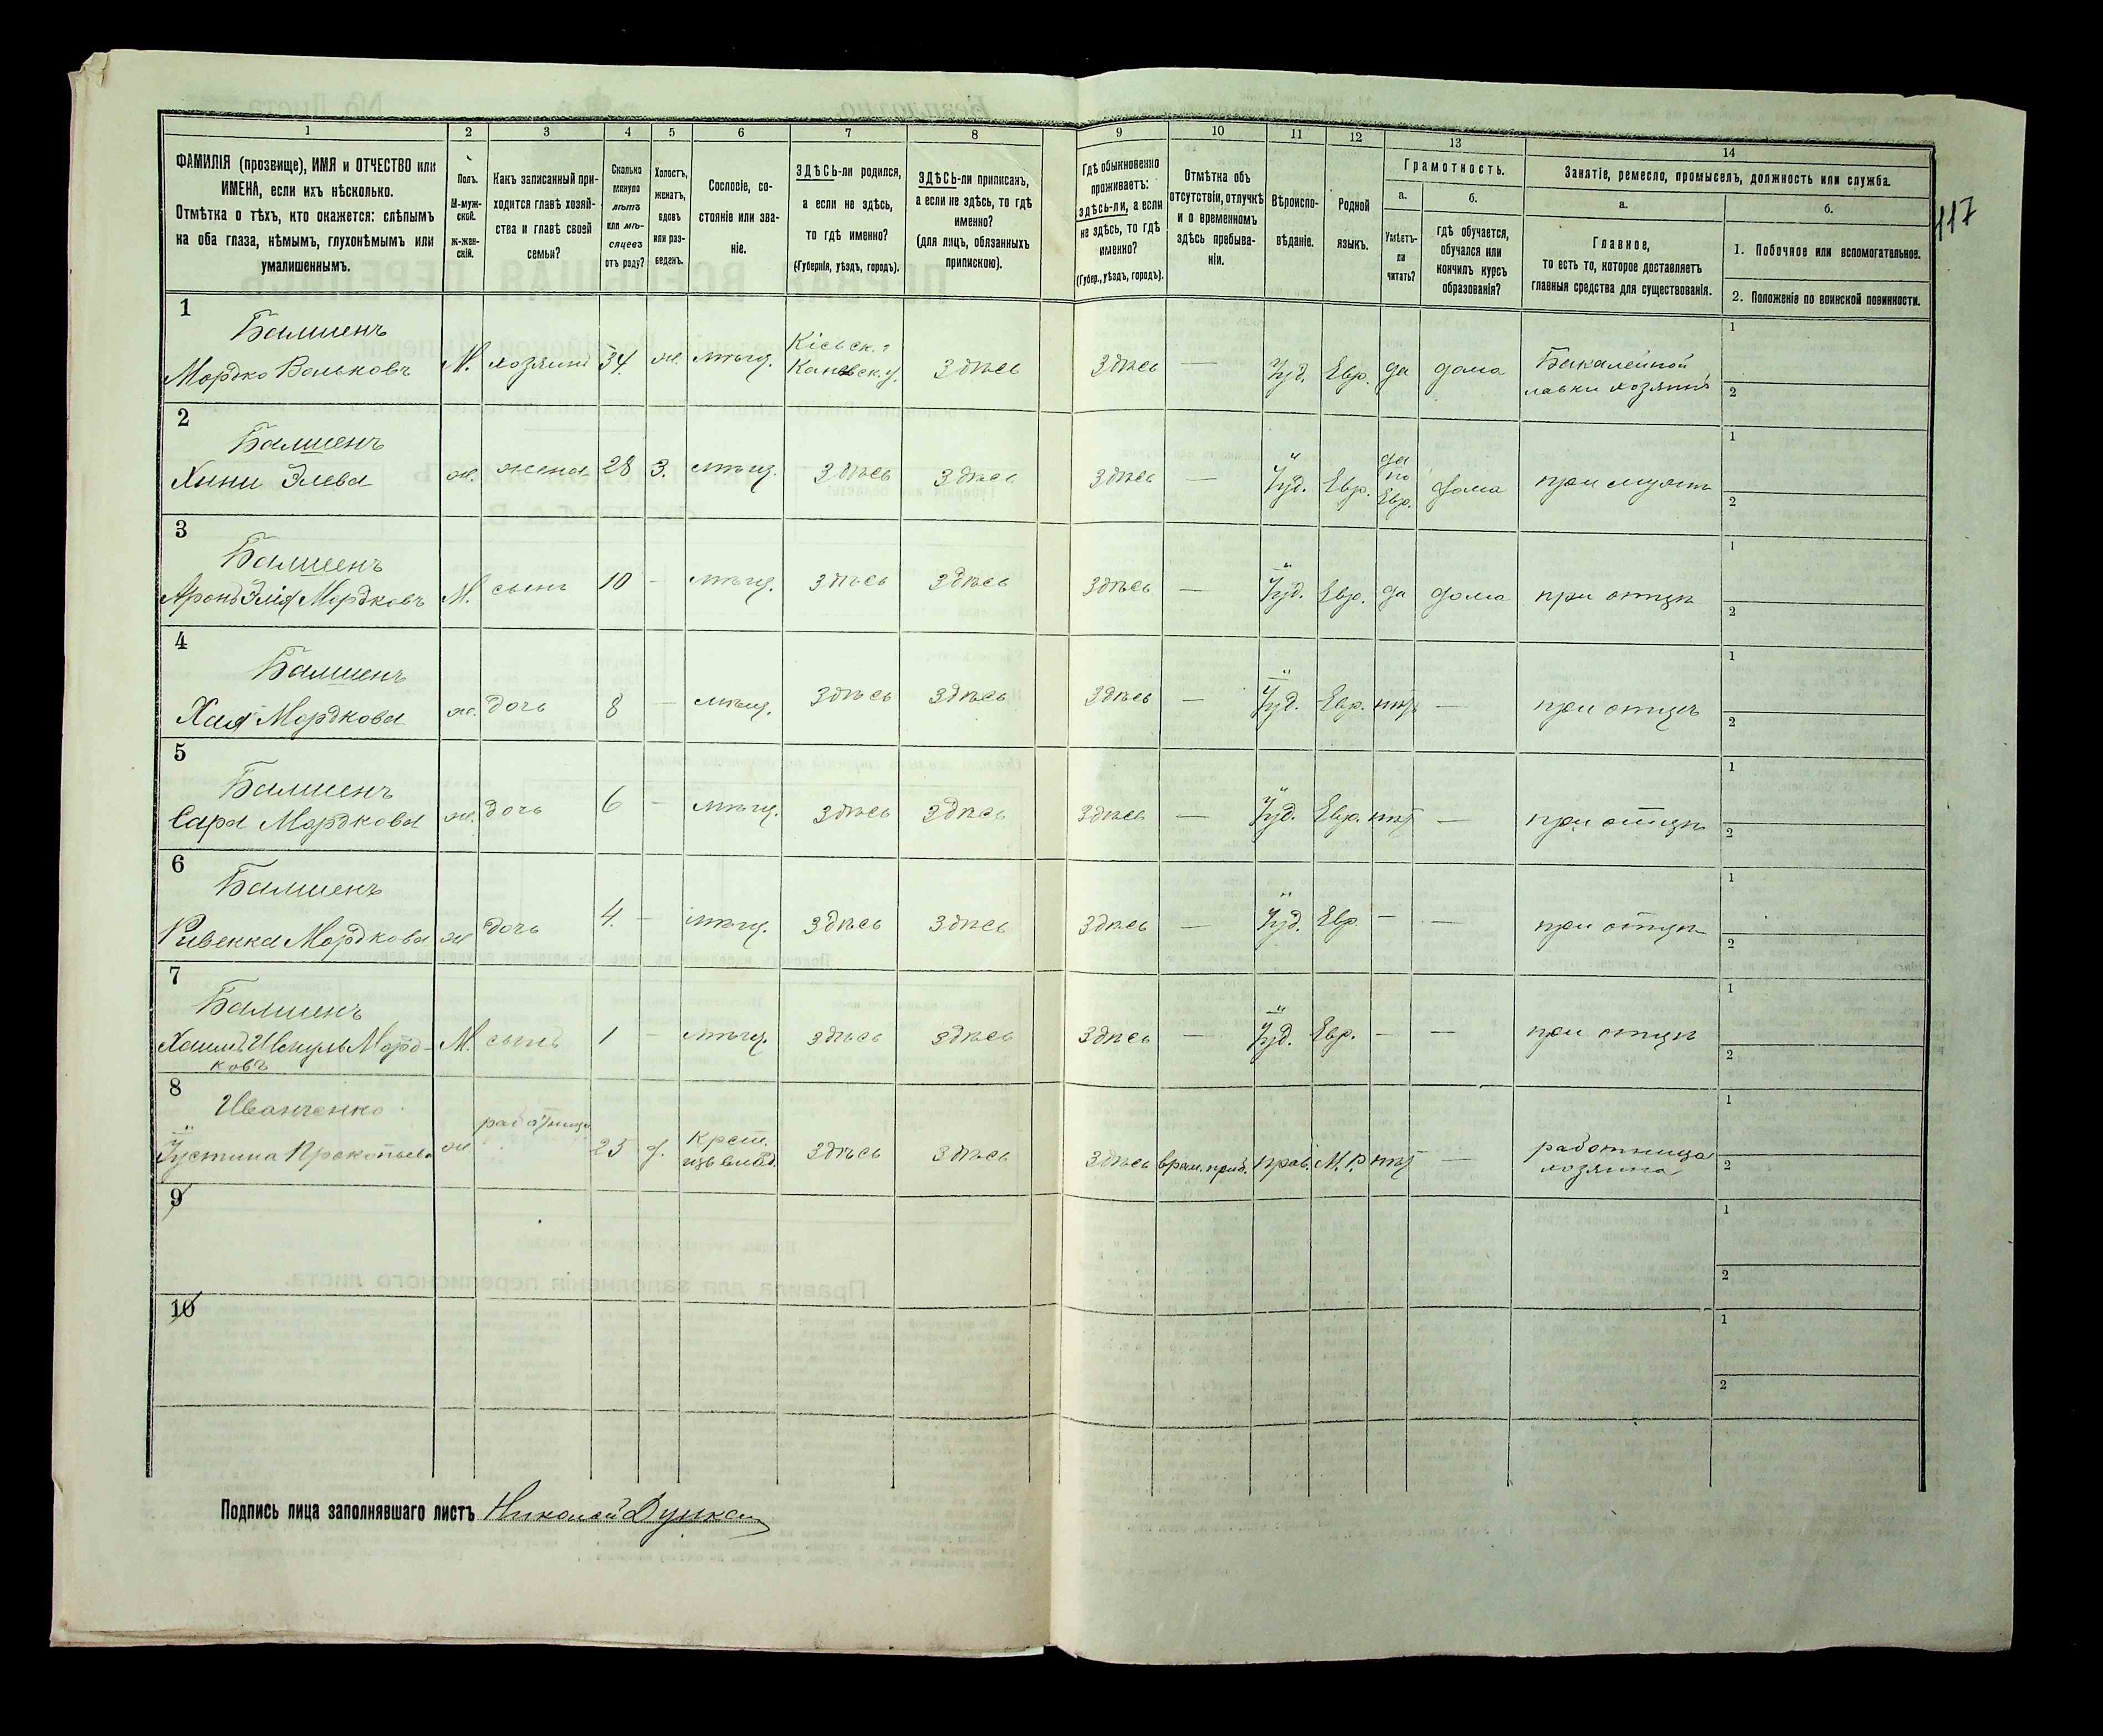 1 2 3 4 5 6 7 8 9 10 11 12 13 14
ФАМИЛІЯ (прозвище), ИМЯ и ОТЧЕСТВО или
ИМЕНА, если ихъ нѣсколько.
Отмѣтка о тѣхъ, кто окажется: слѣпымъ
на оба глаза, нѣмымъ, глухонѣмымъ или
умалишеннымъ.
Полъ.
М-муж-
ской.
Ж-жен-
скій.
Какъ записанный при-
ходится главѣ хозяй-
ства и главѣ своей
семьи?
Сколько
минуло
лѣтъ
или мѣ-
сяцевъ
отъ роду?
Холостъ,
женатъ,
вдовъ
или раз-
веденъ.
Сословіе, со-
стояніе или зва-
ніе.
ЗДѢСЬ-ли родился,
а если не здѣсь,
то гдѣ именно?
(Губернія, уѣздъ, городъ).
ЗДѢСЬ-ли приписанъ,
а если не здѣсь, то гдѣ
именно?
(для лицъ, обязанныхъ
припискою).
Гдѣ обыкновенно
проживаетъ:
здѣсь-ли, а если
не здѣсь, то гдѣ
именно?
(Губер., уѣздъ, городъ).
Отмѣтка объ
отсутствіи, отлучкѣ
и о временномъ
здѣсь пребыва-
ніи.
Вѣроиспо-
вѣданіе.
Родной
языкъ.
Грамотность.
а.
Умѣетъ-
ли
читать?
б.
гдѣ обучается,
обучался или
кончилъ курсъ
образованія?
Занятіе, ремесло, промыселъ, должность или служба.
а.
Главное,
то есть то, которое доставляетъ
главныя средства для существованія.
б.
1. Побочное или вспомогательное.
2. Положеніе по воинской повинности.
117
1
Балшенъ
Мордко Вольковъ М. хозяинъ 34 ж. мѣщ. Кіевск. г. Каневск. у. здѣсь здѣсь — Іуд. Евр. да дома Бакалейной
лавки хозяинъ
1
2
2
Балшенъ
Хини Элева ж. жена 28 з. мѣщ. здѣсь здѣсь здѣсь — Іуд. Евр. да по Евр. дома при мужѣ
1
2
3
Балшенъ
Аронъ Элія Мордковъ М. сынъ 10 - мѣщ. здѣсь здѣсь здѣсь — Іуд. Евр. да дома при отцѣ
1
2
4
Балшенъ
Хая Мордкова ж. дочь 8 - мѣщ. здѣсь здѣсь здѣсь — Іуд. Евр. нѣтъ — при отцѣ
1
2
5
Балшенъ
Сара Мордкова ж. дочь 6 - мѣщ. здѣсь здѣсь здѣсь — Іуд. Евр. нѣт — при отцѣ
1
2
6
Балшенъ
Ривекка Мордкова ж дочь 4. - мѣщ. здѣсь здѣсь здѣсь — Іуд. Евр. — — при отцѣ
1
2
7
Балшенъ
Морд-
ковъ М. сынъ 1 - мѣщ. здѣсь здѣсь здѣсь — Іуд. Евр. — — при отцѣ
1
2
8
Иванченко
Іустина Прокопьева ж работница 25 д. Крест.
изъ влад. здѣсь здѣсь здѣсь врем. приб. прав. М. Р. нѣт — работница
хозяина
1
2
9
1
2
10
1
2
Подпись лица заполнявшаго листъ Николай